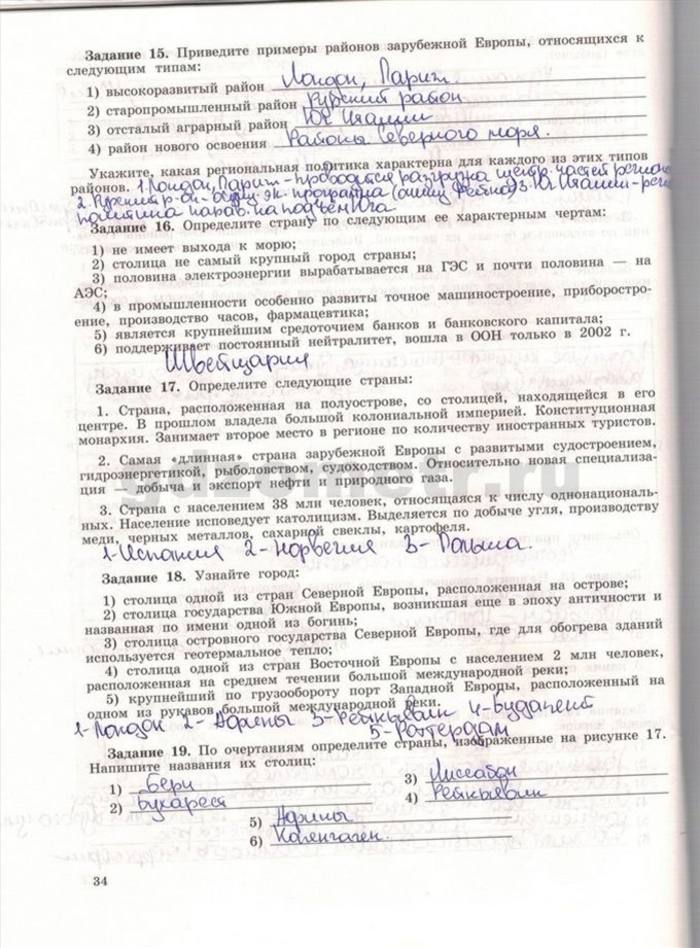 Задание 15. Приведите примеры районов зарубежной Европы, относящихся к
следующим типам:
1) высокоразвитый район Лондон, Париж
2) старопромышленный район Рурский район
3) отсталый аграрный район Юг Италии
4) район нового освоения Районы Северного моря.
Укажите, какая региональная политика характерна для каждого из этих типов
районов. 1. Лондон, Париж - проводится разгрузка центр. частей регионов
2. Рурский р-он - общая эк. программа 3. Юг Италии - рег.
политика направ. на подъем Юга
Задание 16. Определите страну по следующим ее характерным чертам:
1) не имеет выхода к морю;
2) столица не самый крупный город страны;
3) половина электроэнергии вырабатывается на ГЭС и почти половина — на
АЭС;
4) в промышленности особенно развиты точное машиностроение, приборостро-
ение, производство часов, фармацевтика;
5) является крупнейшим средоточием банков и банковского капитала;
6) поддерживает постоянный нейтралитет, вошла в ООН только в 2002 г.
Швейцария
Задание 17. Определите следующие страны:
1. Страна, расположенная на полуострове, со столицей, находящейся в его
центре. В прошлом владела большой колониальной империей. Конституционная
монархия. Занимает второе место в регионе по количеству иностранных туристов.
2. Самая «длинная» страна зарубежной Европы с развитыми судостроением,
гидроэнергетикой, рыболовством, судоходством. Относительно новая специализа-
ция — добыча и экспорт нефти и природного газа.
3. Страна с населением 38 млн человек, относящаяся к числу однонациональ-
ных. Население исповедует католицизм. Выделяется по добыче угля, производству
меди, черных металлов, сахарной свеклы, картофеля.
1- Испания 2- Норвегия 3- Польша.
Задание 18. Узнайте город:
1) столица одной из стран Северной Европы, расположенная на острове;
2) столица государства Южной Европы, возникшая еще в эпоху античности и
названная по имени одной из богинь;
3) столица островного государства Северной Европы, где для обогрева зданий
используется геотермальное тепло;
4) столица одной из стран Восточной Европы с населением 2 млн человек,
расположенная на среднем течении большой международной реки;
5) крупнейший по грузообороту порт Западной Европы, расположенный на
одном из рукавов большой международной реки.
1- Лондон 2- Афины 3- Рейкьявик 4- Будапешт
5- Роттердам
Задание 19. По очертаниям определите страны, изображенные на рисунке 17.
Напишите названия их столиц:
1) Берн
2) Бухарест
3) Лиссабон
4) Рейкьявик
5) Афины
6) Копенгаген.
34